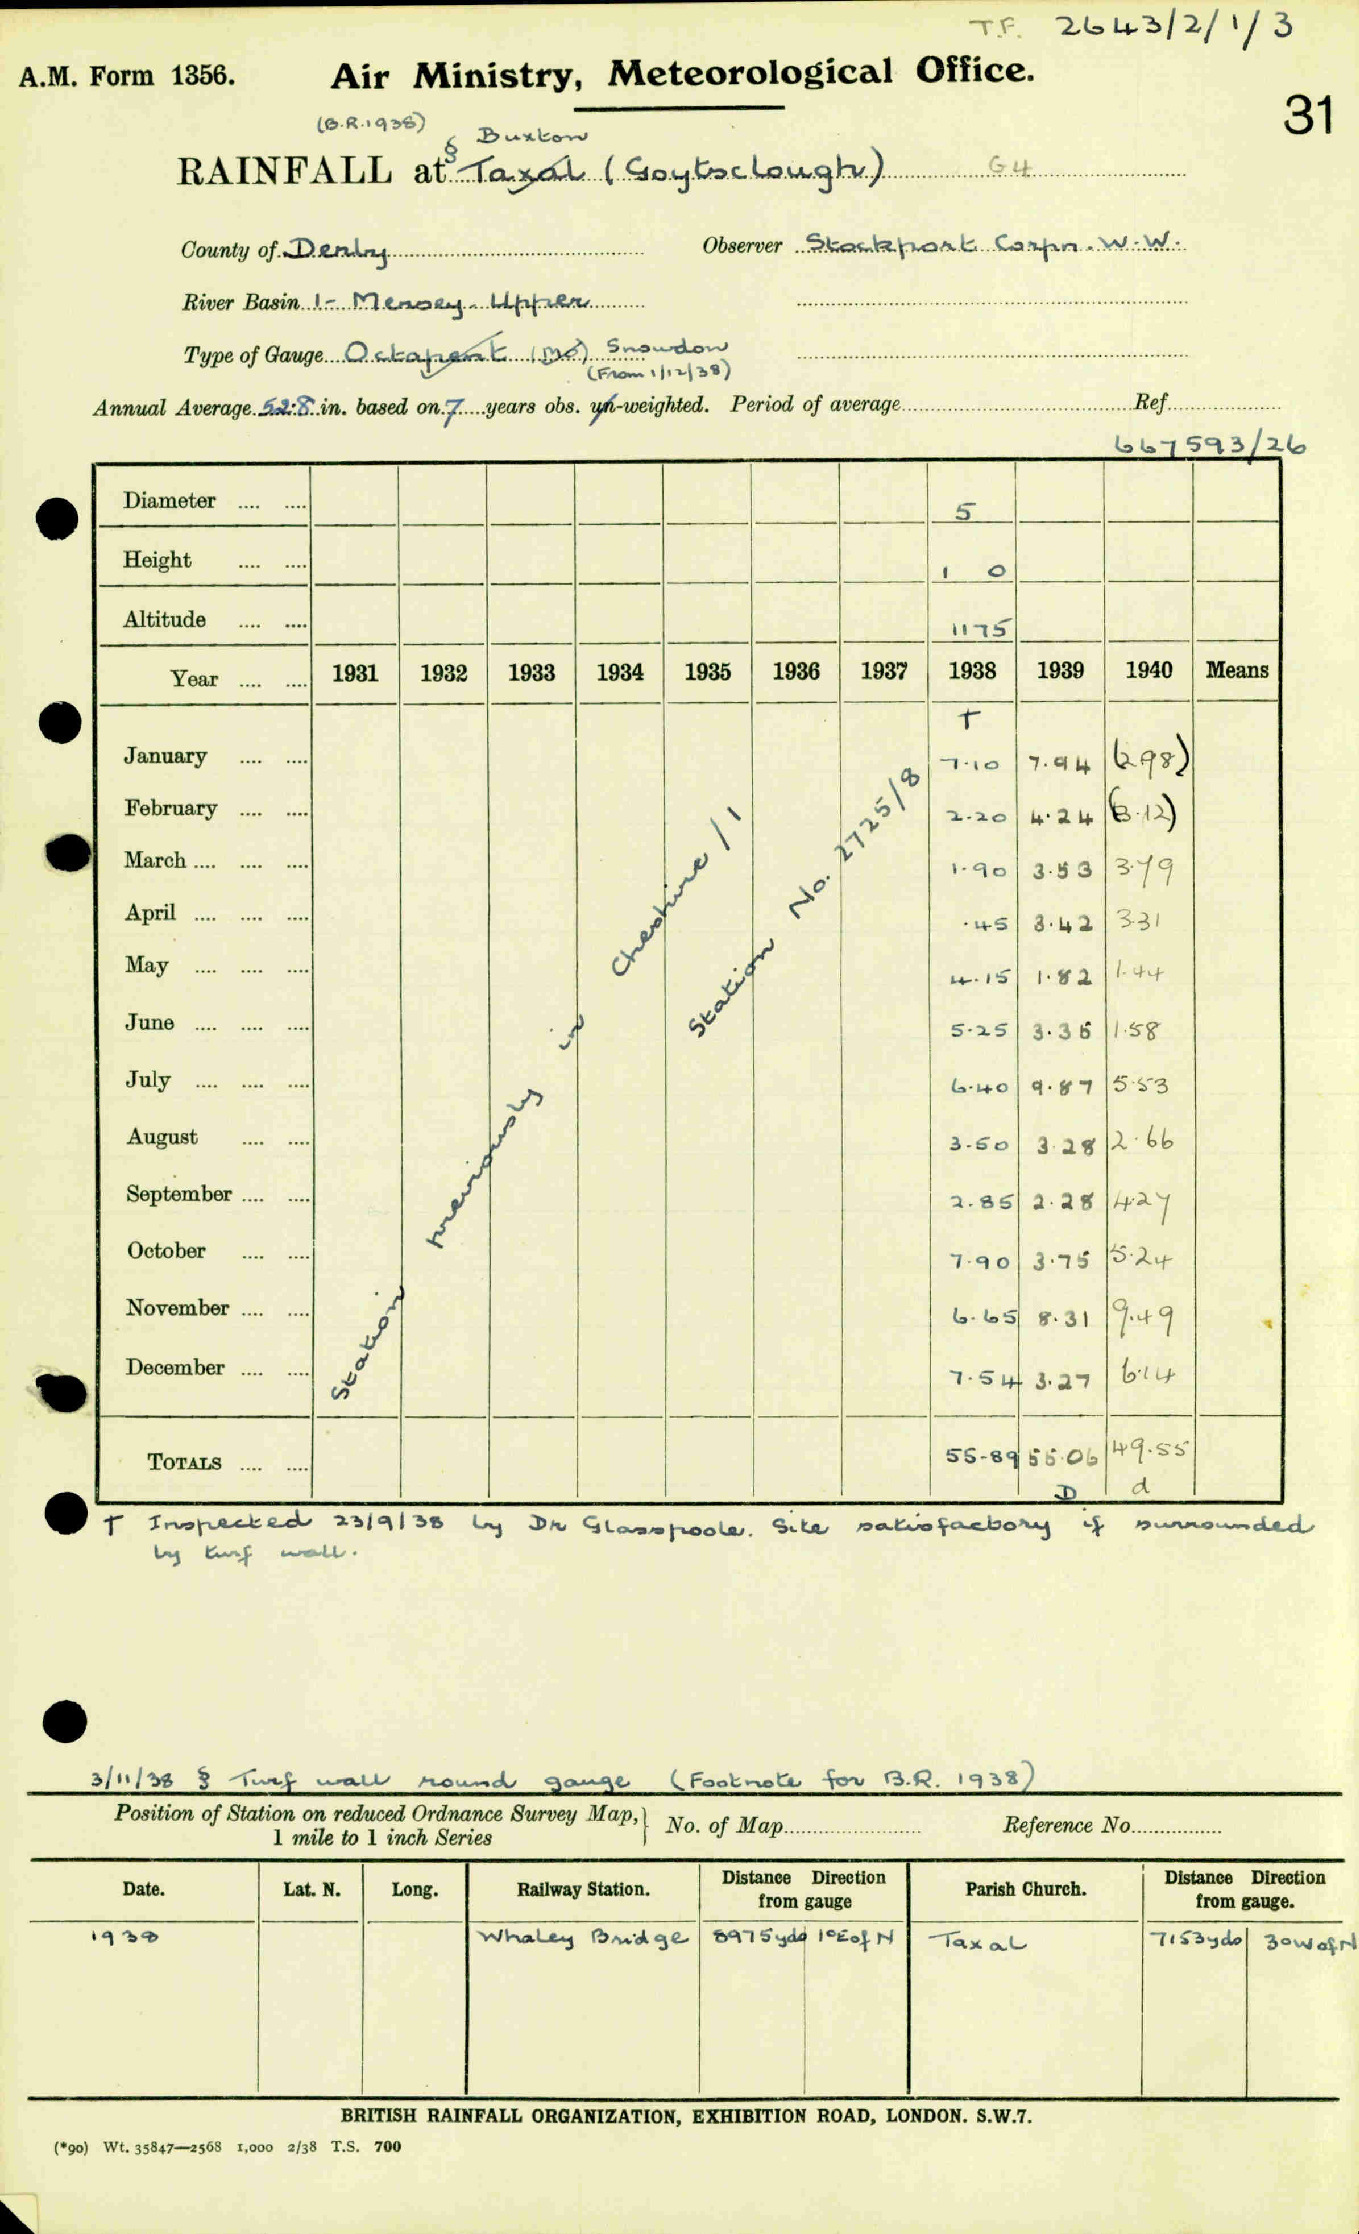 T.F. 2643/2/1/3
A.M. Form 1356. Air Ministry, Meteorological Office.
31
(B.R.1938)
§ Buxton
RAINFALL at Taxal (Goytsclough) G4
County of Derby Observer Stockport Corpn. W.W.
River Basin 1- Mersey. Upper
Type of Gauge Octapent (Mo) Snowdon
(From 1/12/38)
Annual Average 52.8 in. based on 7 years obs. un-weighted. Period of average Ref.
667593/26
Diameter .... .... 5
Height .... .... 1 0
Altitude .... .... 1175
Year .... .... 1931 1932 1933 1934 1935 1936 1937 1938 1939 1940 Means
†
January .... .... 7.10 7.94 (2.98)
February .... .... 2.20 4.24 (3.12)
March .... .... .... 1.90 3.53 3.79
April .... .... .... .45 3.42 3.31
May .... .... .... 4.15 1.82 1.44
June .... .... .... 5.25 3.35 1.58
July .... .... .... 6.40 9.87 5.53
August .... .... 3.50 3.28 2.66
September .... .... 2.85 2.28 4.27
October .... .... 7.90 3.75 5.24
November .... .... 6.65 8.31 9.49
December .... .... 7.54 3.27 6.14
Station previously in Cheshire/1
Station No. 2725/8
TOTALS .... .... 55.89 55.06 49.55
D d
† Inspected 23/9/38 by Dr Glasspoole. Site satisfactory if surrounded
by turf wall.
3/11/38 § Turf wall round gauge (Footnote for B.R. 1938)
Position of Station on reduced Ordnance Survey Map, } No. of Map Reference No.
1 mile to 1 inch Series
Date. Lat. N. Long. Railway Station. Distance Direction from gauge Parish Church. Distance Direction from gauge.
1938 Whaley Bridge 8975yds 1°E of N Taxal 7153yds 3°W of N
BRITISH RAINFALL ORGANIZATION, EXHIBITION ROAD, LONDON. S.W.7.
(*90) Wt. 35847—2568 1,000 2/38 T.S. 700